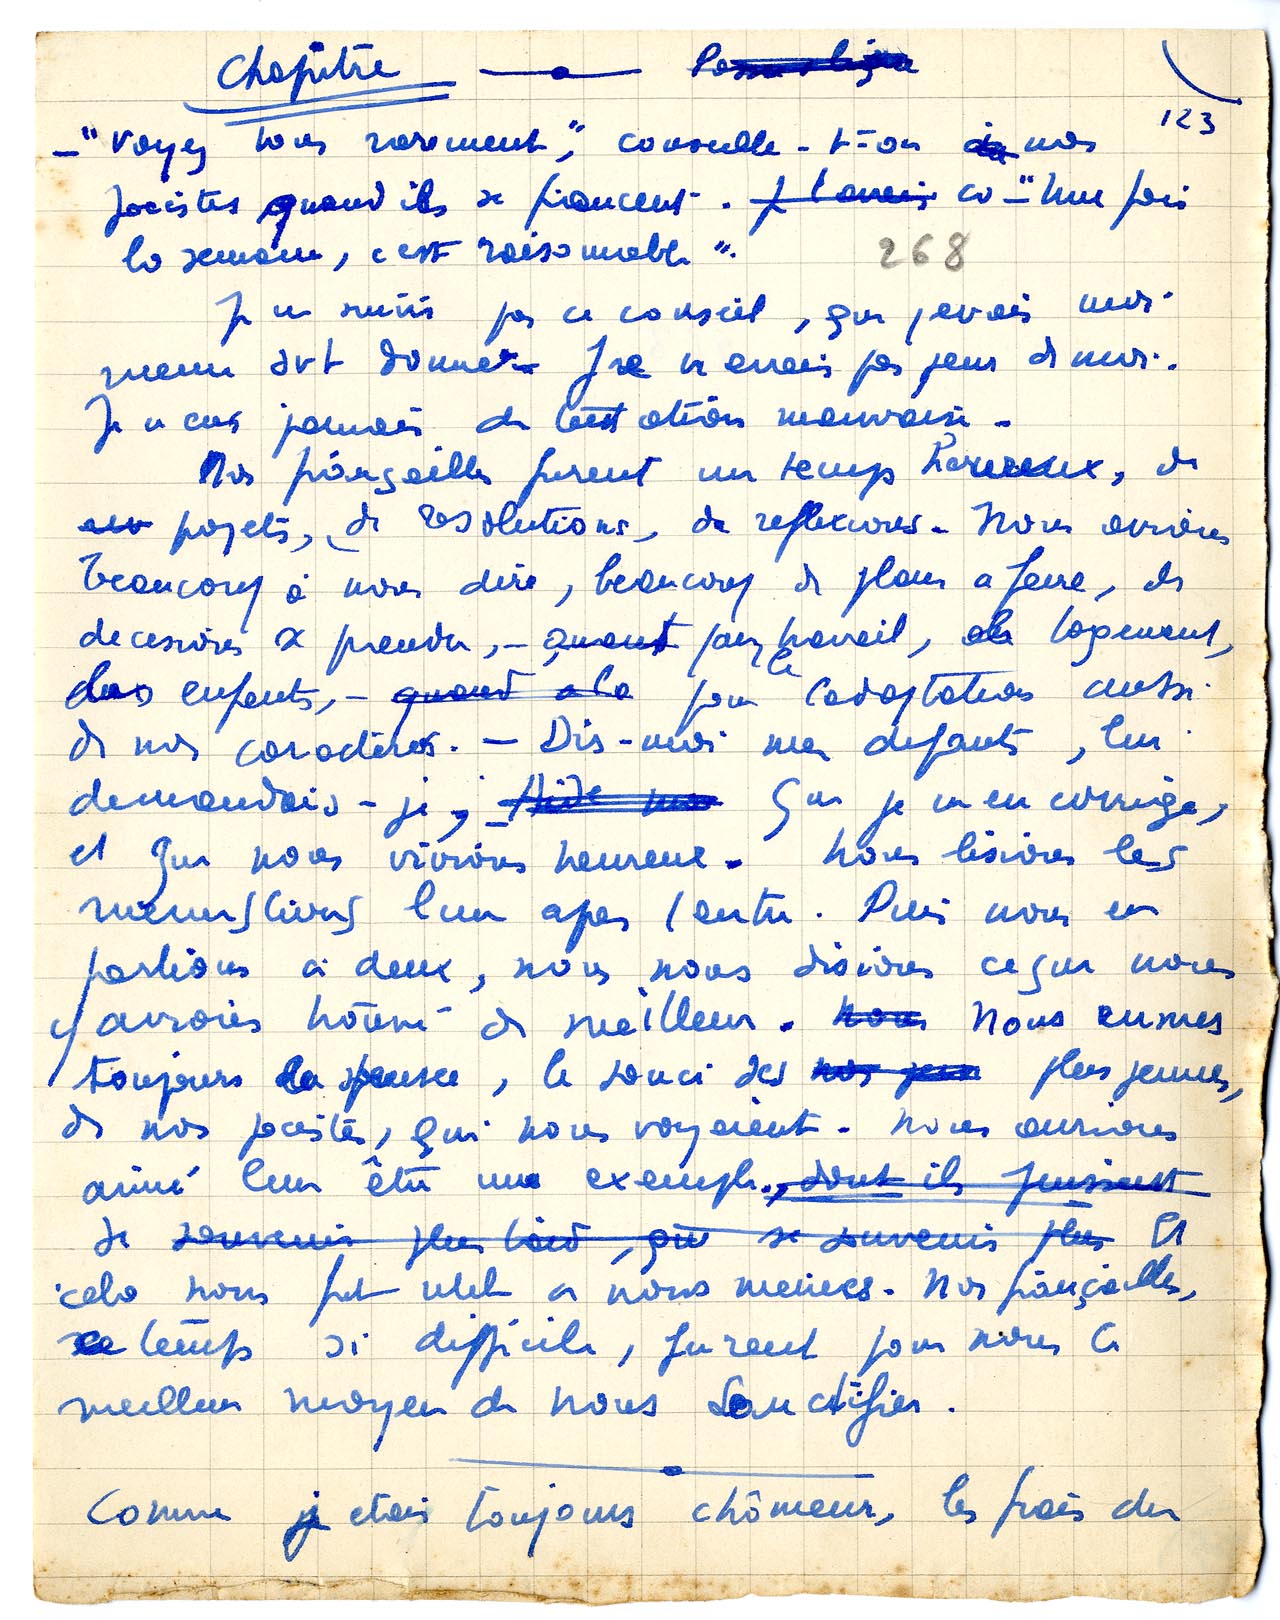 Chapitre
123
— "Voyez vous rarement", conseille-t-on à nos
jocistes quand ils se fiancent. — "Une fois
la semaine, c'est raisonnable".
268
Je ne suivis pas ce conseil, que j'avais moi
meme dut donner. Je n'avais pas peur de moi.
Je n'eus jamais de tentation mauvaise.
Nos fiançailles furent un temps heureux, de
projets, de resolutions, de reflexions. Nous avions
beaucoup à nous dire, beaucoup de plans a faire, de
decisions a prendre, — quant travail, logement,
des enfants, — quand a la pour l'adaptation aussi
de nos caractères. — Dis-moi mes defauts, lui
demandais-je, — Aide moi Que je m'en corrige,
et que nous vivions heureux. Nous lisions les
memes livres l'un apres l'autre. Puis nous en
parlions à deux, nous nous disions ce que nous
y avions trouvé de meilleur. Nous Nous eumes
toujours la pensee, le souci des plus jeunes,
de nos jocistes, qui nous voyaient. Nous aurions
aimé leur être un exemple, dont ils puissent
se souvenir plus tard, se souvenir plus Et
cela nous fut utile a nous memes. Nos fiançailles,
ce temps si difficile, furent pour nous le
meilleur moyen de nous sanctifier.
Comme j'etais toujours chômeur, les frais du